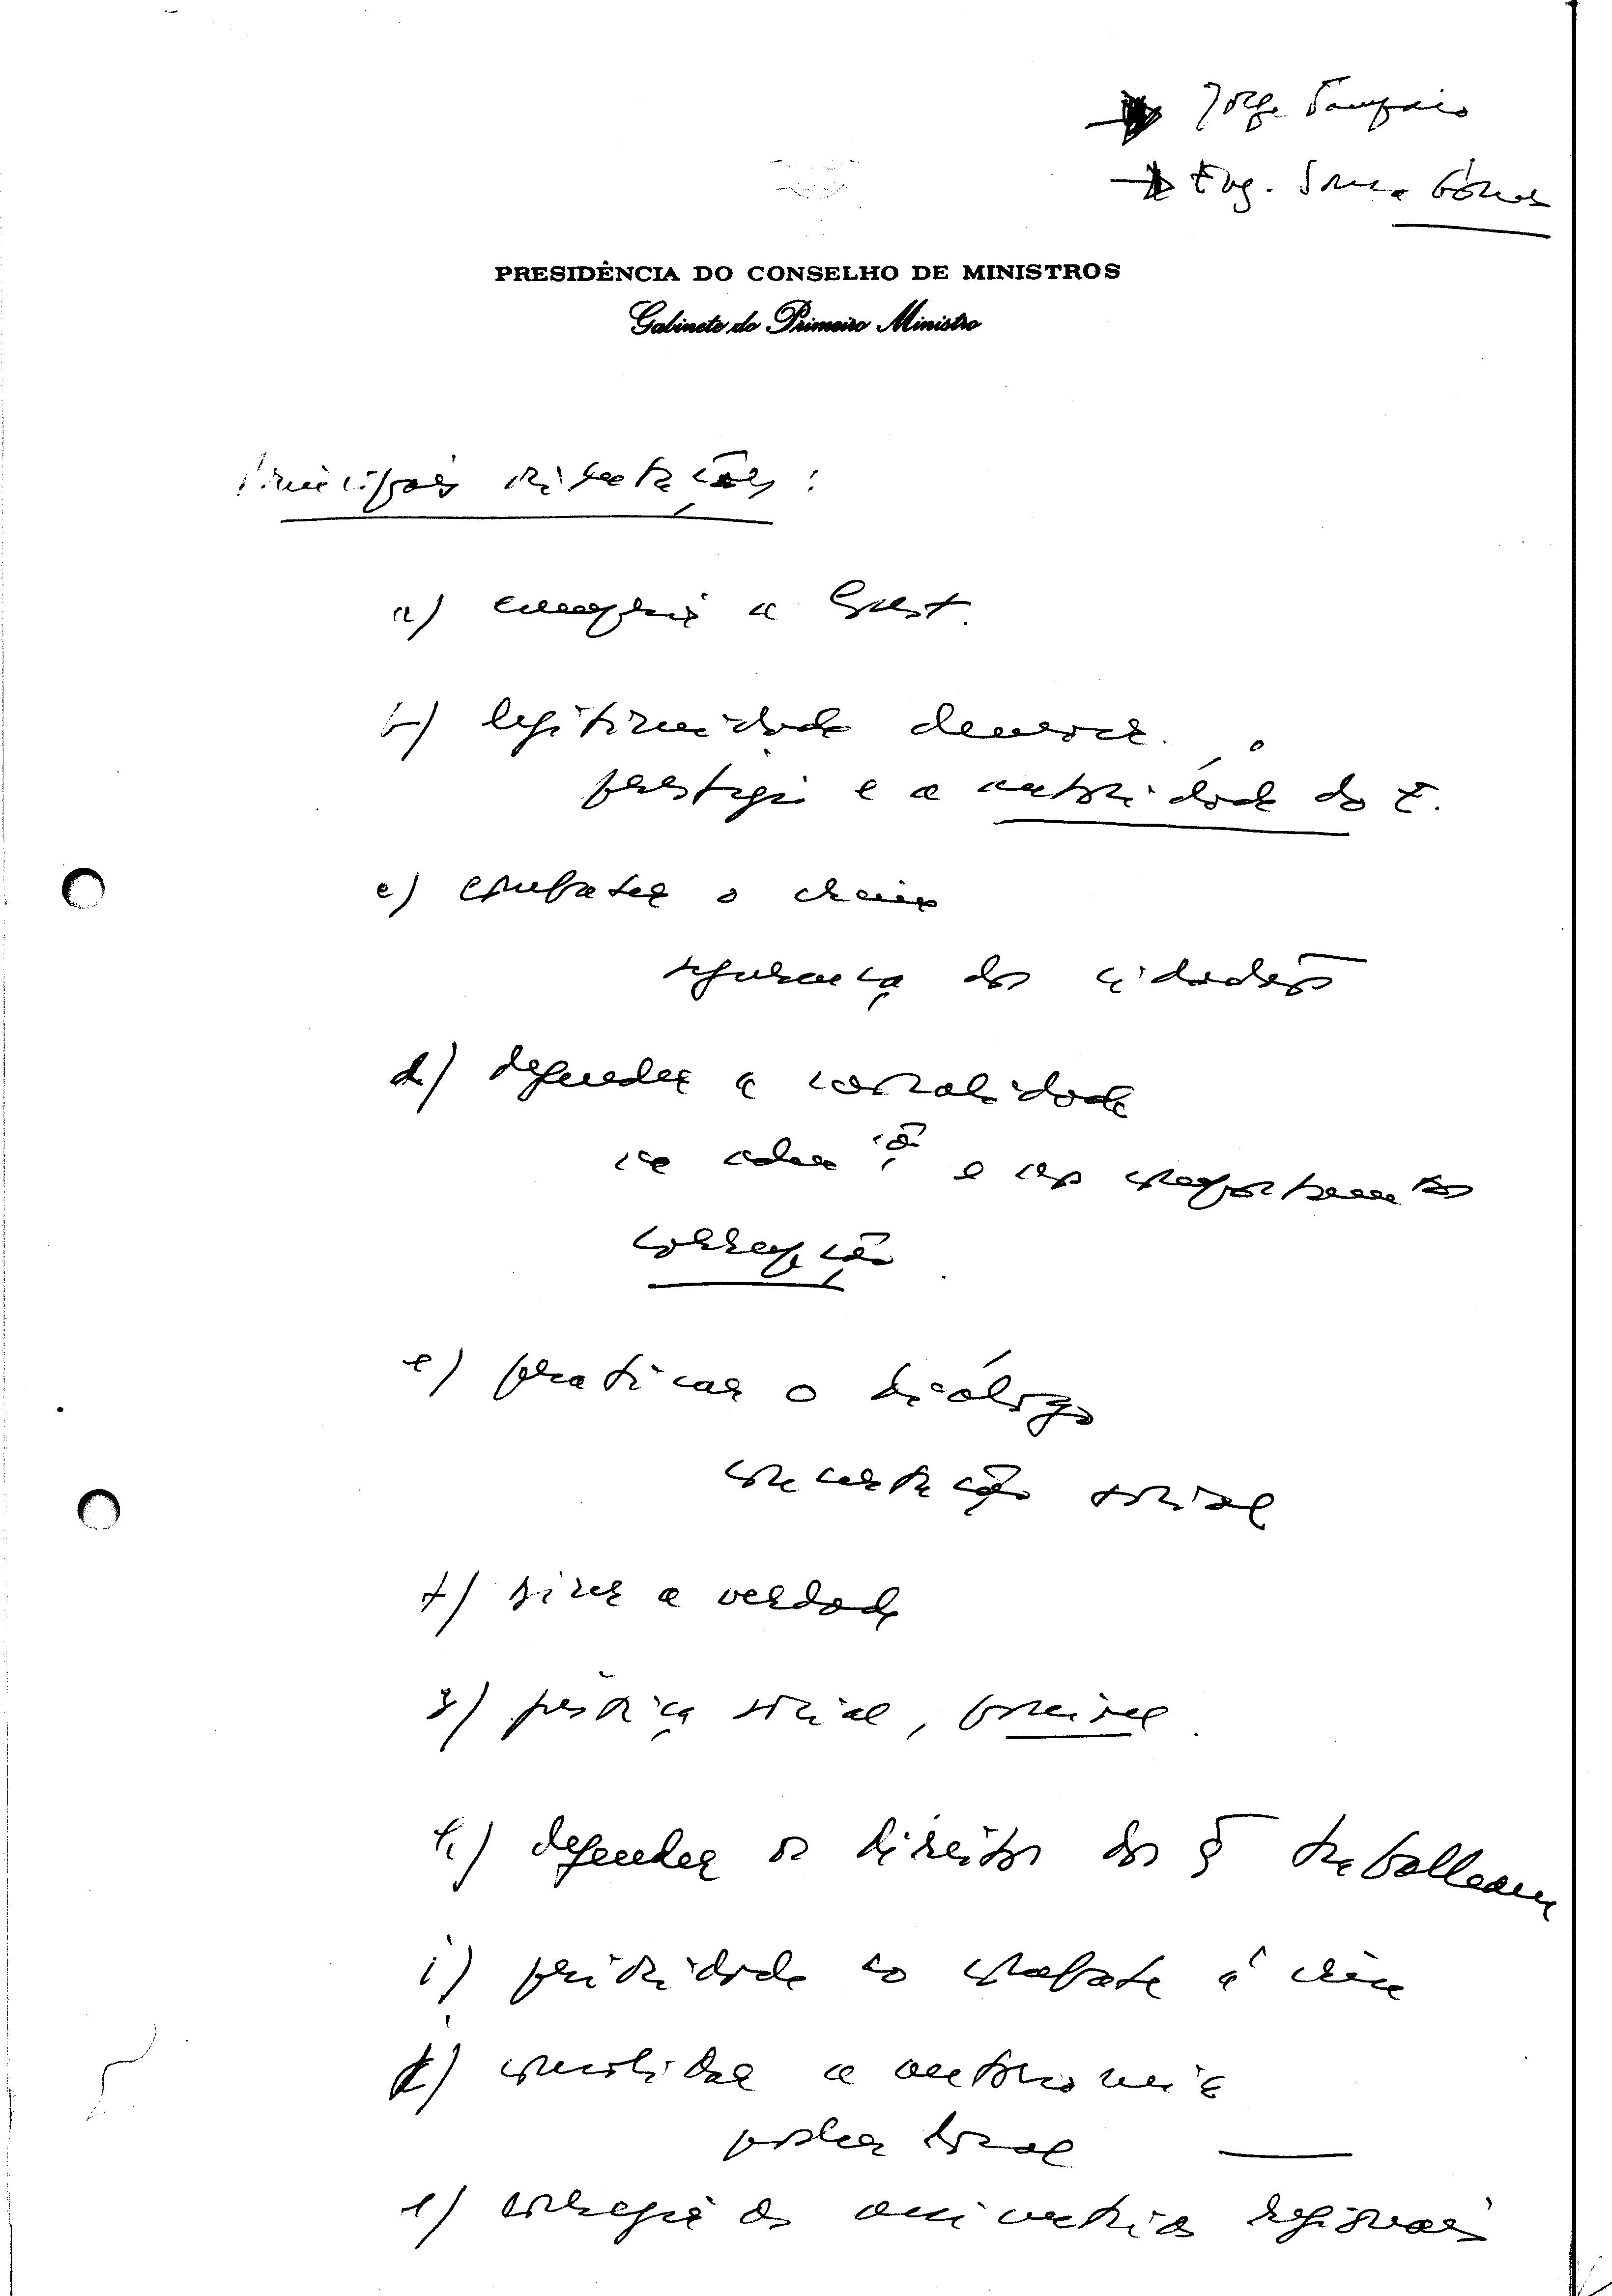 → Jorge Sampaio
→ Eng. Sousa Gomes
PRESIDÊNCIA DO CONSELHO DE MINISTROS
Gabinete do Primeiro Ministro
Principais orientações :
a) cumprir a Const.
b) legitimidade democr.
prestígio e a autoridade do E.
c) combater o crime
segurança dos cidadãos
d) defender a moralidade
na adm ção e nos comportamentos
corrupção
e) praticar o diálogo
concertação social
f) dizer a verdade
g) justiça social,
h) defender os direitos dos trabalham
i) prioridade ao combate à crise
k) consolidar a autonomia
poder local
l) corrigir as assimetrias regionais